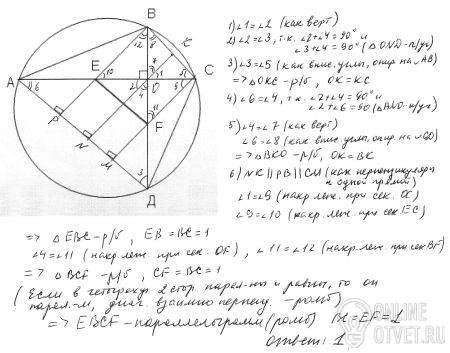 B
K
A
E
O
C
P
N
M
F
Д
1) ∠1=∠2 (как верт)
2) ∠2=∠3, т.к. ∠2+∠4=90° и
∠3+∠4=90° (△OND-п/уг)
3) ∠3=∠5 (как впис. углы, опир. на ∪AB)
=> △OKC - р/б, OK=KC
4) ∠6=∠4, т.к. ∠2+∠4=90° и
∠2+∠6=90 (△AND-п/уг)
5) ∠4=∠7 (как верт)
∠6=∠8 (как впис. углы, опир. на ∪CD)
=> △BKO - р/б, OK=BK
6) NK||PB||CM (как перпендикуляры
к одной прямой)
∠1=∠9 (накр. леж. при сек. OC)
∠9=∠10 (накр. леж. при сек EC)
=> △EBC - р/б, EB=BC=1
∠4=∠11 (накр. леж. при сек. OF), ∠11=∠12 (накр. леж. при сек BF)
=> △BCF - р/б, CF=BC=1
(Если в четырехуг. 2 стор. парал-ны и равны, то он
парал-м, диаг. взаимно перпенд. - ромб)
=> EBCF - параллелограмм (ромб) BC=EF=1
Ответ: 1
ONLINE
OTVET.RU